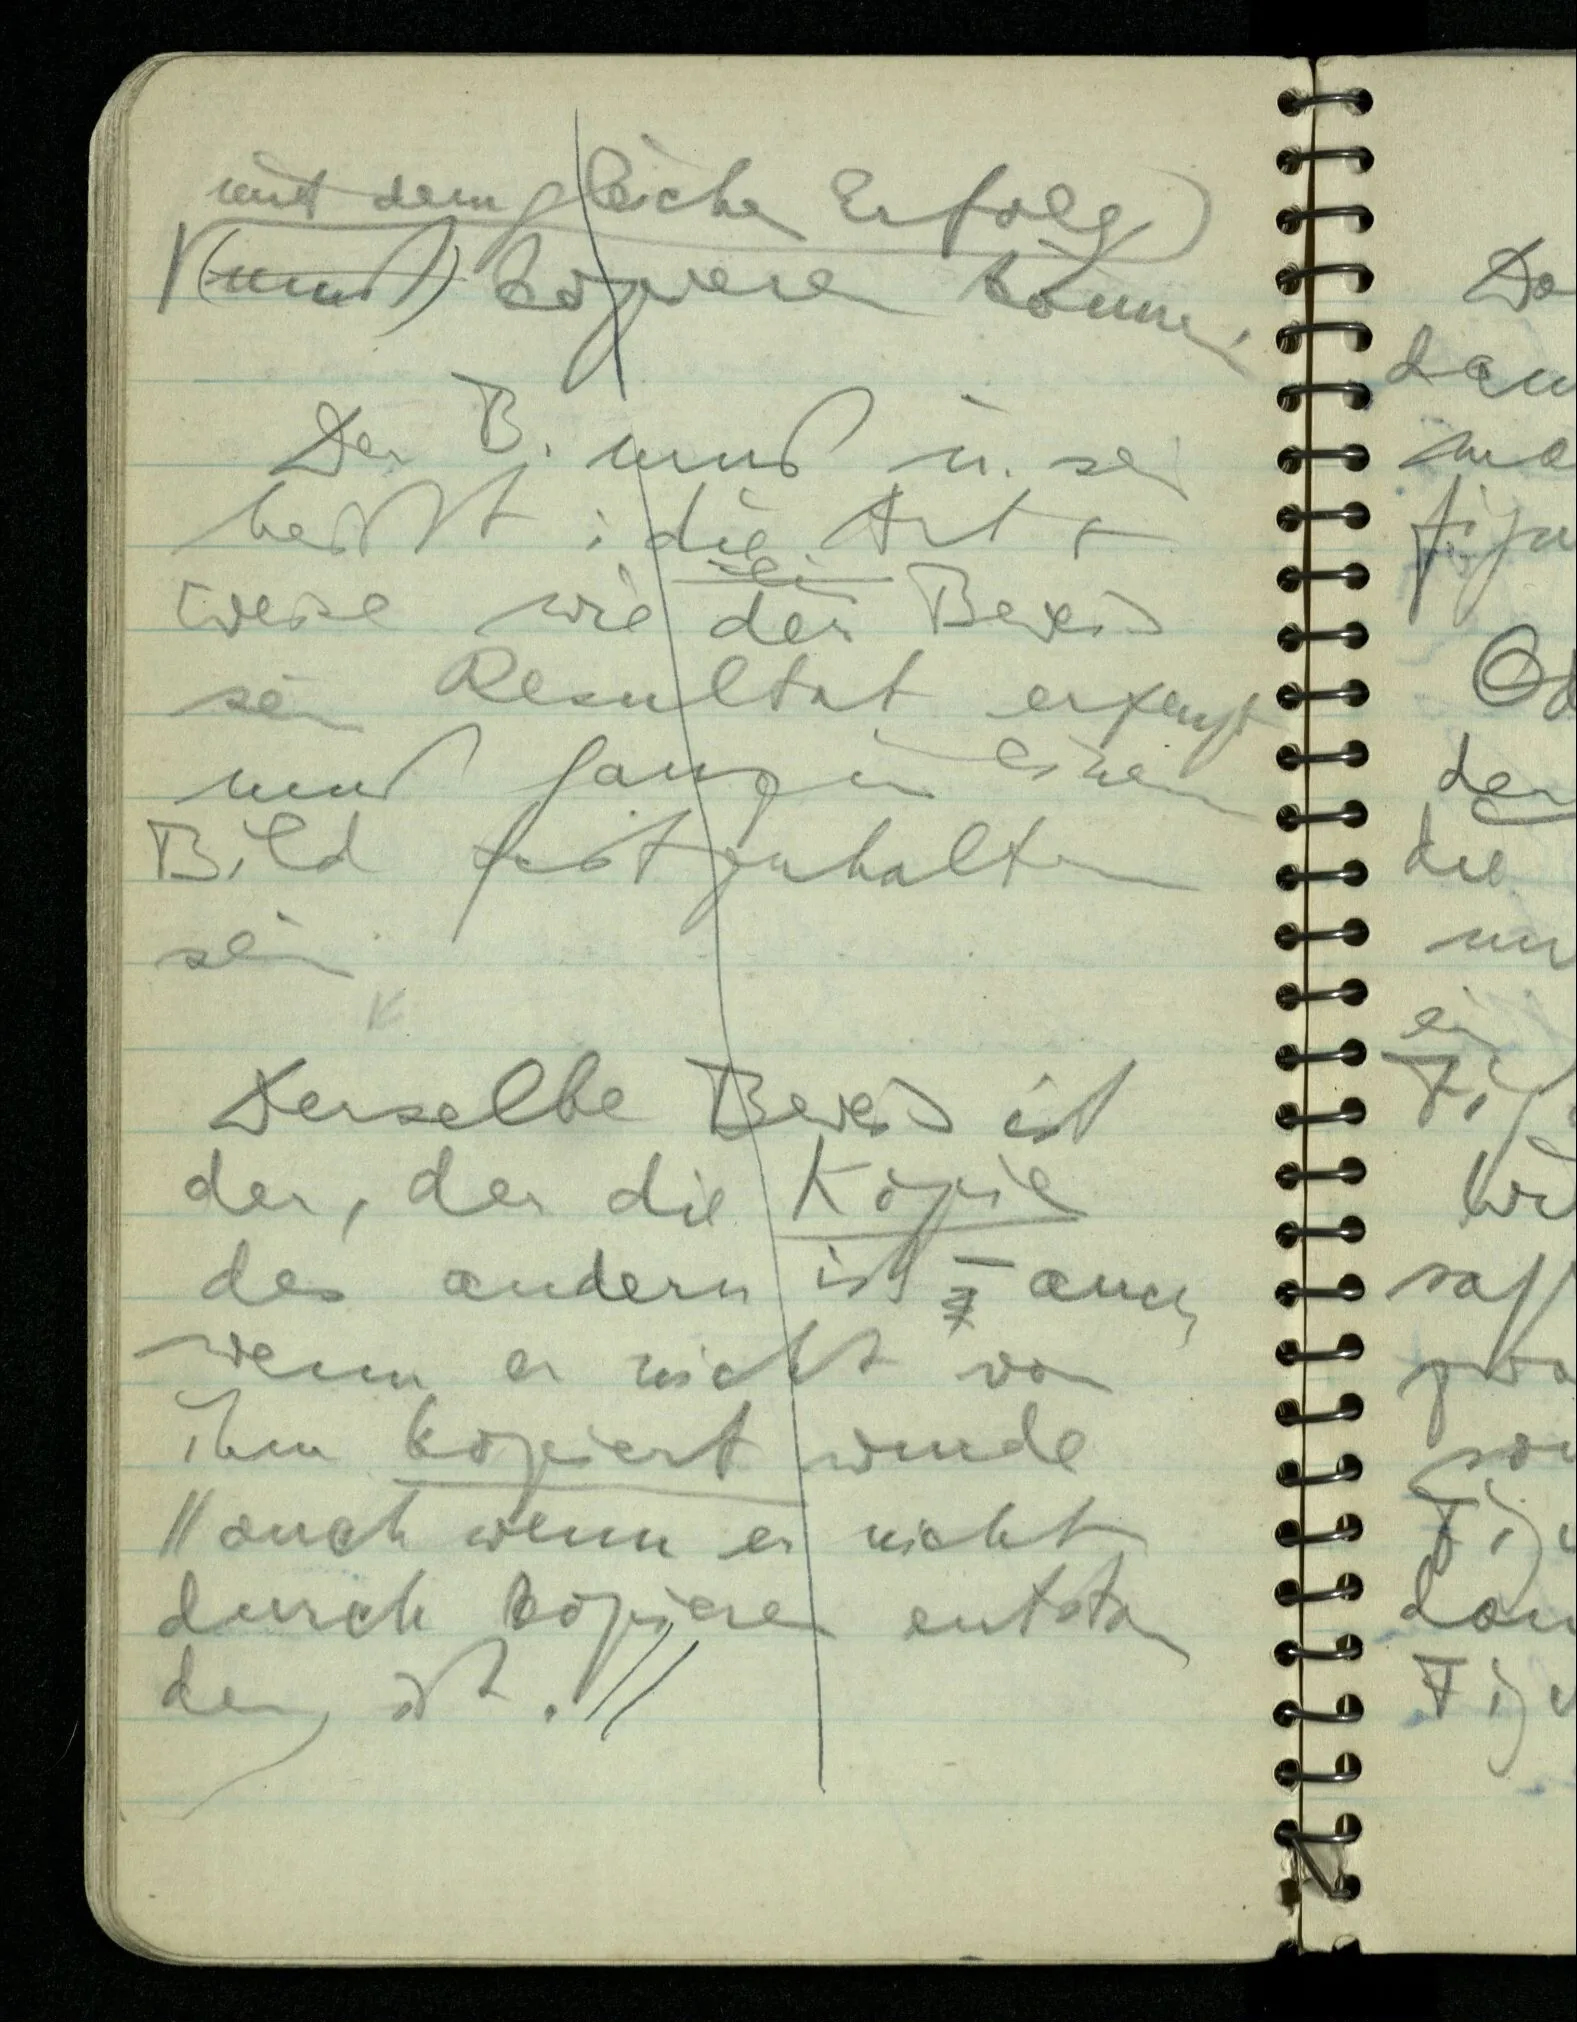 mit dem gleiche Erfolg)
(muß) kopieren können.
Der B. muß ü. sei
heißt: die Art +
weise wie der Beweis
sei
sein Resultat erzeugt
muß ganz in einem
Bild festzuhalten
sein.
Derselbe Beweis ist
der, der die Kopie
des andern ist – auch
wenn er nicht von
ihm kopiert wurde
// auch wenn er nicht
durch kopieren entstan
den ist. //
Do
dem
figu
Od
der
die
ein
Figu
Wi
sag
Figu
dan
Figu